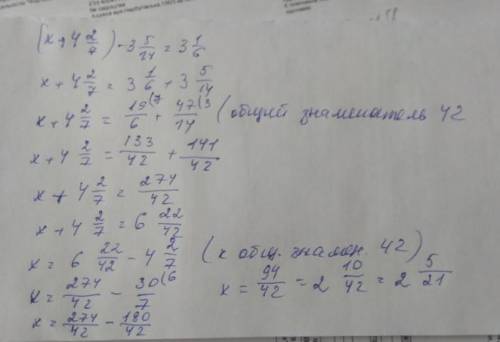 (x+4 2/7) - 3 5/14 = 3 1/6
x + 4 2/7 = 3 1/6 + 3 5/14
x + 4 2/7 = 19/6 (7 + 47/14 (3 (общий знаменатель 42
x + 4 2/7 = 133/42 + 141/42
x + 4 2/7 = 274/42
x + 4 2/7 = 6 22/42
x = 6 22/42 - 4 2/7 (к общ. знамен. 42)
x = 274/42 - 30/7 (6
x = 274/42 - 180/42
x = 94/42 = 2 10/42 = 2 5/21